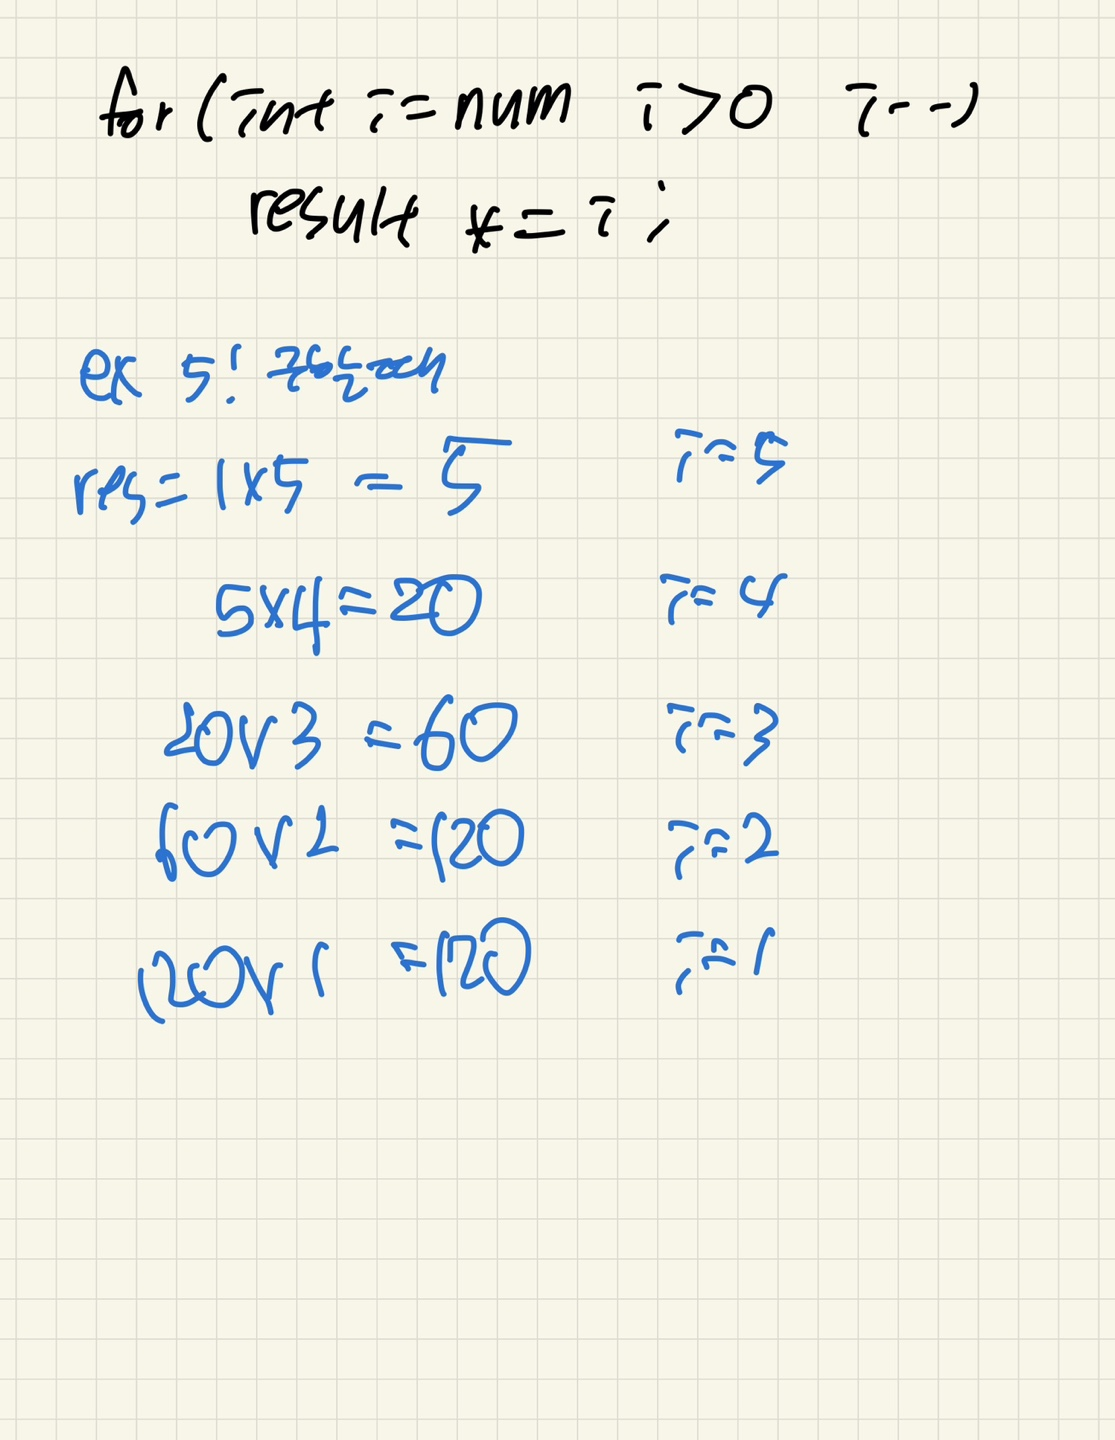 for (int i = num i>0 i--)
result *= i ;
ex 5!
res = 1x5 = 5 i=5
5x4=20 i=4
20x3 =60 i=3
60x2 =120 i=2
120x1 =120 i=1